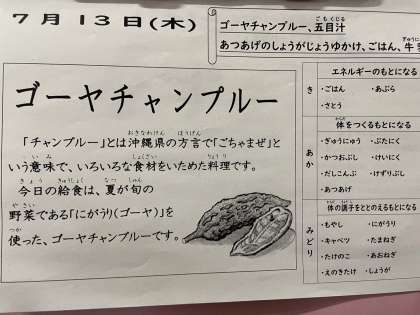 7月13日(木)
ゴーヤチャンプルー、五目汁
あつあげのしょうがじょうゆかけ、ごはん、牛
ゴーヤチャンプルー
「チャンプルー」とは沖縄県の方言で「ごちゃまぜ」と
いう意味で、いろいろな食材をいためた料理です。
今日の給食は、夏が旬の
野菜である「にがうり(ゴーヤ)」を
使った、ゴーヤチャンプルーです。
き
エネルギーのもとになる
・ごはん ・あぶら
・さとう
あか
体をつくるもとになる
・ぎゅうにゅう ・ぶたにく
・かつおぶし ・けいにく
・だしこんぶ ・けずりぶし
・あつあげ
みどり
体の調子をととのえるもとになる
・もやし ・にがうり
・キャベツ ・たまねぎ
・たけのこ ・あおねぎ
・えのきたけ ・しょうが